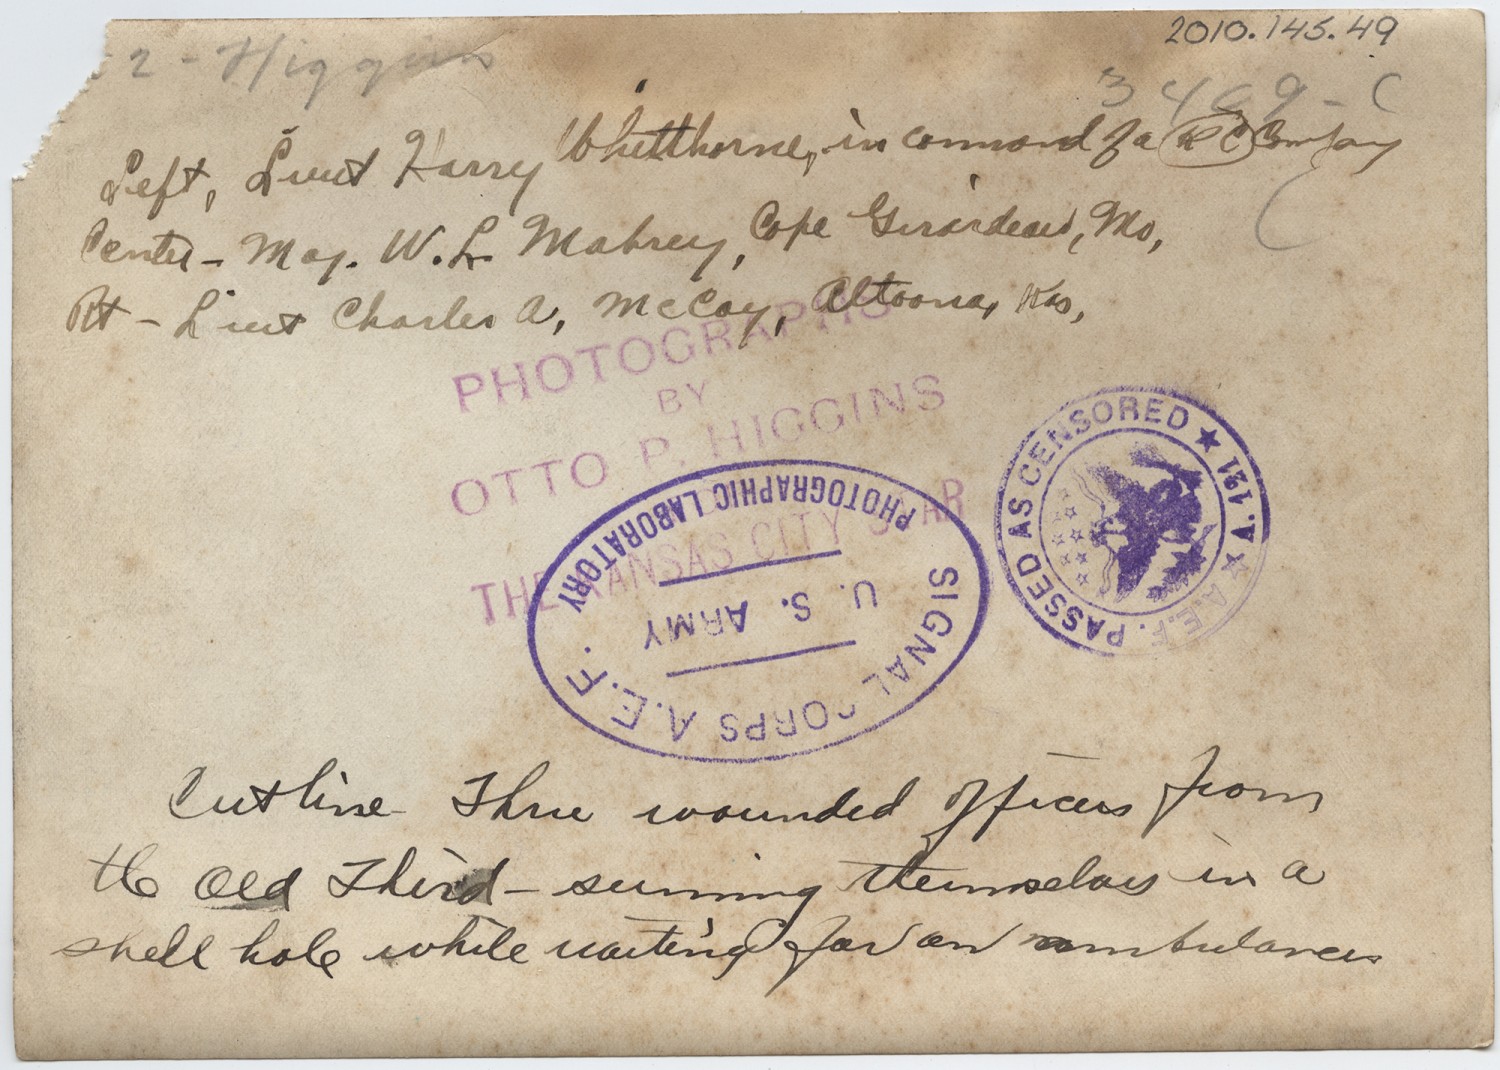 2 - Higgins
2010.145.49
3469 - C
Left, Lieut Harry Whitthorne, in command of a K C Company
Center - Maj. W. L. Mabrey, Cape Girardeau, Mo,
Rt - Lieut Charles A, McCoy, Altoona, Kas,
PHOTOGRAPHS
BY
OTTO P. HIGGINS
THE KANSAS CITY STAR
PHOTOGRAPHIC LABORATORY
U. S. ARMY
SIGNAL CORPS A.E.F.
A.E.F. PASSED AS CENSORED ★ A. 191 ★
Cutline Three wounded officers from
the Old Third - sunning themselves in a
shell hole while waiting for an ambulances